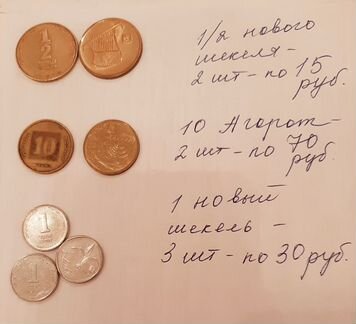 1/2 нового
шекеля -
2 шт - по 15
руб.
10 Агорот -
2 шт - по 70
руб.
1 новый
шекель -
3 шт - по 30 руб.
1
2
10
1
1